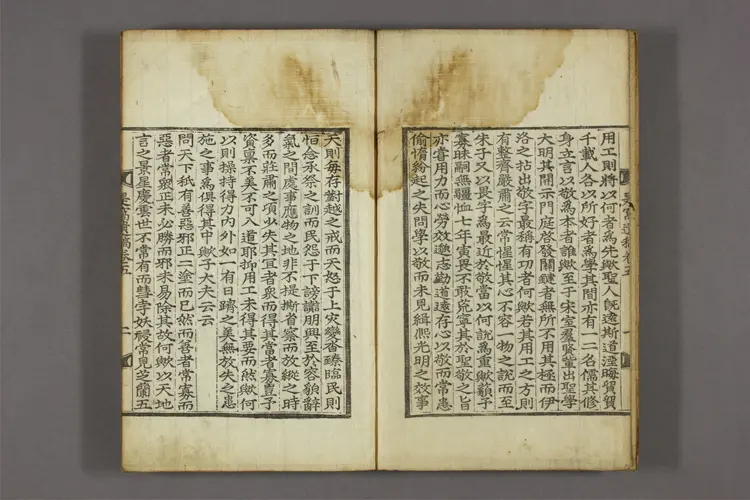 用工則將以何者爲先歟聖人旣遠斯道湮晦貿貿
千載人各以所好者爲學其間亦有一二名儒其修
身立言以敬爲本者誰歟至于宋室羣賢輩出聖學
大明其開示門庭啓發關鍵者無所不用其極而伊
洛之拈出敬字最稱有功者何歟若其用工之方則
有整齊嚴肅之云常惺惺其心不容一物之說而至
朱子又以畏字爲最近於敬當以何說爲重歟顧予
寡昧嗣無疆恤七年寅畏不敢荒寧其於聖敬之旨
亦嘗用力而心勞效邈志勤道遠存心以敬而常患
偸惰紛起之失問學以敬而未見緝熙光明之效事
天則每存對越之戒而天怒于上灾變沓臻臨民則
恒念承祭之訓而民怨于下謗讟朋興至於容貌辭
氣之間處事應物之地非不提撕省察而放縱之時
多而莊肅之頃少失其宜者衆而得其當者寡豈予
資稟不美不可入道耶抑用工未得其要而然歟何
以則操持得力內外如一有日躋之美無放失之患
施之事爲俱得其中歟子大夫云云
問天下秪有善惡邪正二塗而已然而善者常寡而
惡者常衆正未必勝而邪未易除其故何歟以天地
言之景星慶雲世不常有而彗孛妖祲常見芝蘭五